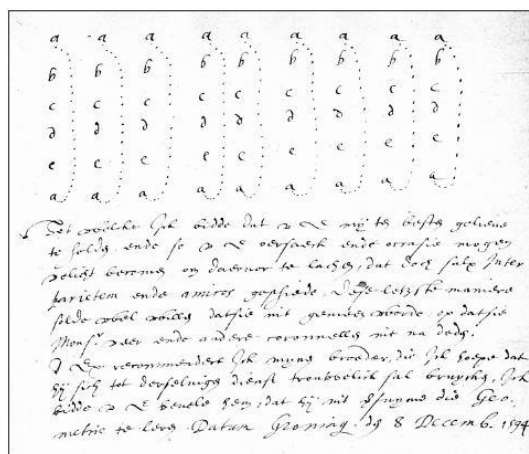 a a a a a a a a a
b b b b b b b b b
c c c c c c c c c
d d d d d d d d d
e e e e e e e e e
a a a a a a a a a
Het welcke Ick bidde dat v E my te besten gelieve
te holden, ende so v E oersaeck ende occasie mogen
velicht becomen om daervor te lachen, dat doch sulx Inter
parietem ende amicos geschiede. Dese letste maniere
solde wel willen datsie nit gemeen worde, op datsie
Monsr veer ende andere coronnells nit na deden.
V Ex recommendeert Ick mynen broeder, die Ick hoepe dat
hy sich tot derselvigen dienst trouwelick sal bruycken, Ick
bidde v E bevele hem, dat hy nit versuyme die Geo-
metrie te leren. Datum Groning. den 8 Decemb. 1594